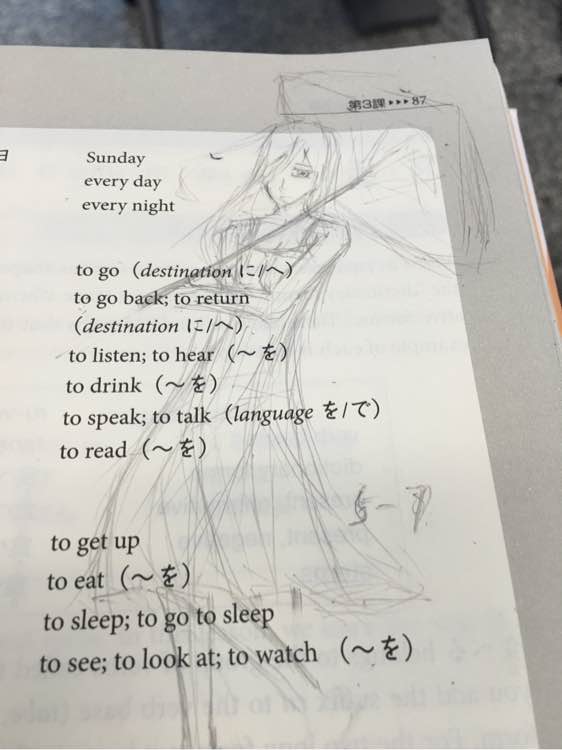 第3課▸▸▸87
日
Sunday
every day
every night
to go (destination に/へ)
to go back; to return
(destination に/へ)
to listen; to hear (〜を)
to drink (〜を)
to speak; to talk (language を/で)
to read (〜を)
to get up
to eat (〜を)
to sleep; to go to sleep
to see; to look at; to watch (〜を)